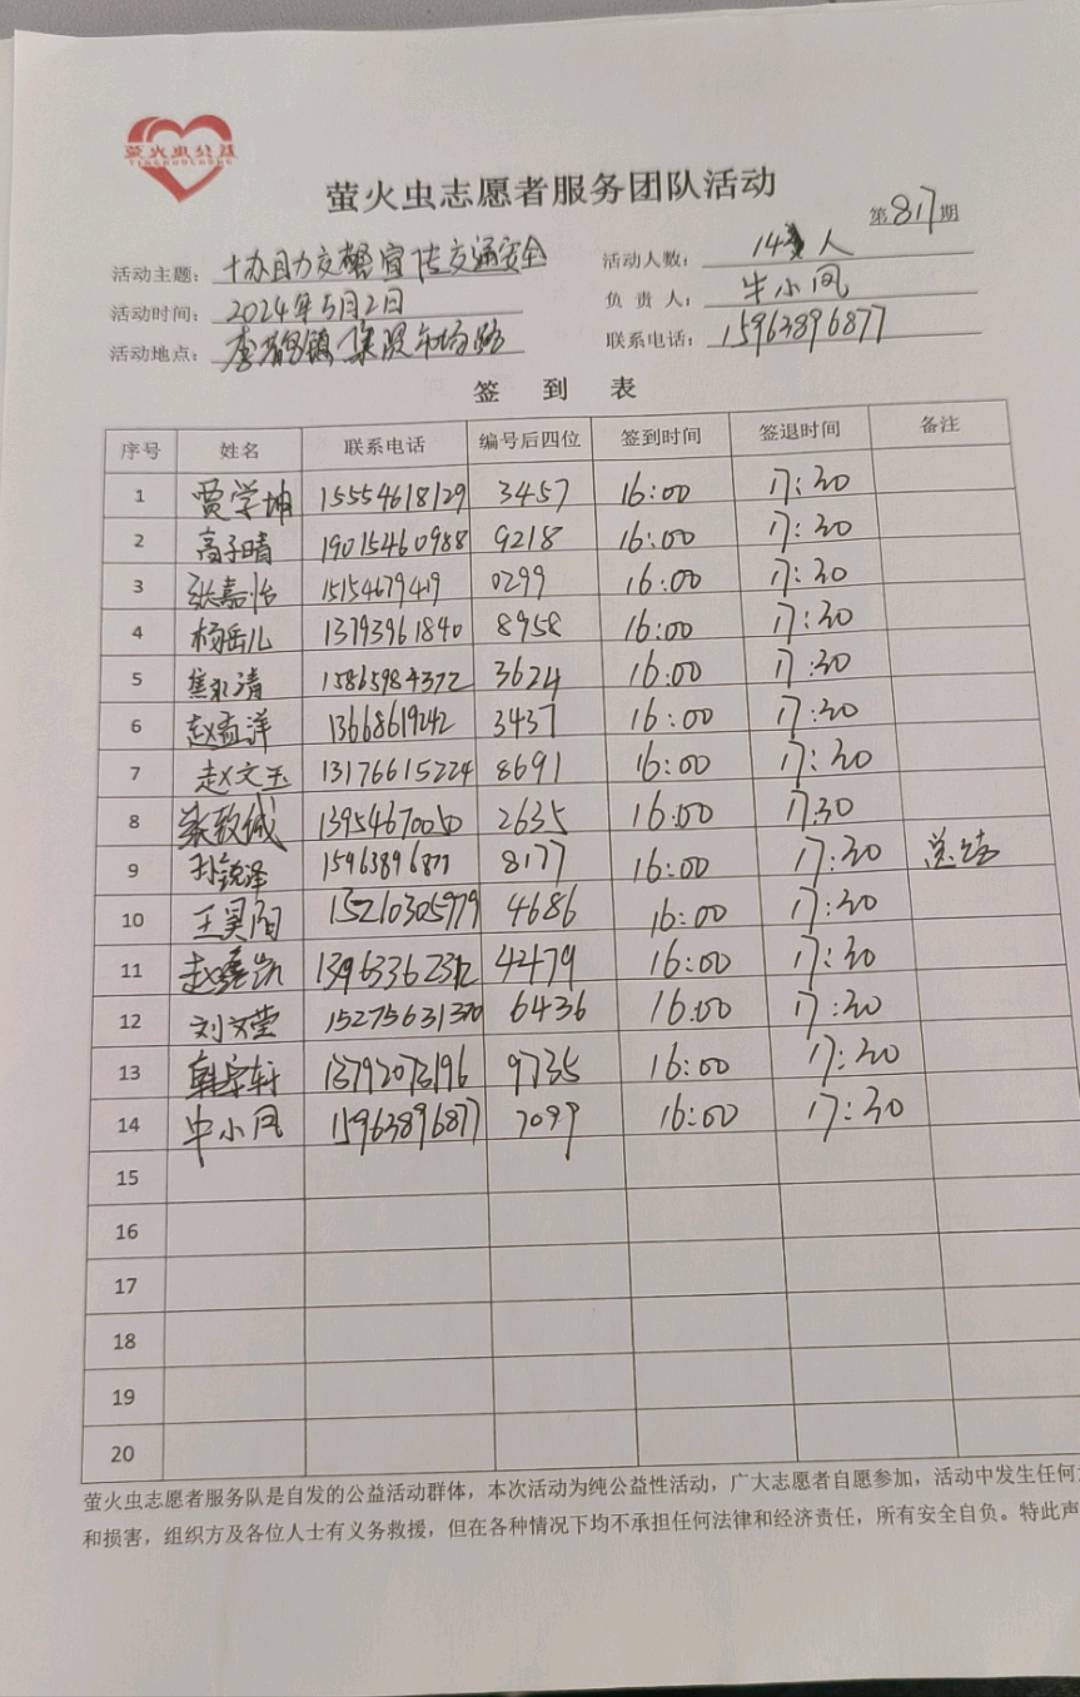 萤火虫公益
YINGHUOCHONG
萤火虫志愿者服务团队活动
第817期
活动主题：协助交警宣传交通安全
活动人数：14人
活动时间：2024年5月2日
负 责 人：牛小凤
活动地点：李鹊镇集贸市场路
联系电话：15963896877
签 到 表
序号 姓名 联系电话 编号后四位 签到时间 签退时间 备注
1 贾学坤 15554618129 3457 16:00 17:30
2 高子晴 19015460988 9218 16:00 17:30
3 张嘉怡 15154679419 0299 16:00 17:30
4 杨岳儿 13793961840 8958 16:00 17:30
5 焦永清 15865984372 3624 16:00 17:30
6 赵孟洋 13668619242 3437 16:00 17:30
7 赵文玉 13176615224 8691 16:00 17:30
8 张致诚 13954670050 2635 16:00 17:30
9 孙锐泽 15963896877 8177 16:00 17:30 总结
10 王昊阳 15210305979 4686 16:00 17:30
11 赵 凯 13963362312 42479 16:00 17:30
12 刘文莹 15275631370 6436 16:00 17:30
13 韩宗轩 13792073196 9735 16:00 17:30
14 牛小凤 15963896877 7099 16:00 17:30
15
16
17
18
19
20
萤火虫志愿者服务队是自发的公益活动群体，本次活动为纯公益性活动，广大志愿者自愿参加，活动中发生任何
和损害，组织方及各位人士有义务救援，但在各种情况下均不承担任何法律和经济责任，所有安全自负。特此声